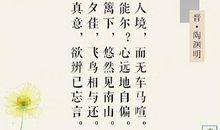 晋·陶渊明
人境，而无车马喧。
能尔？心远地自偏。
篱下，悠然见南山。
夕佳，飞鸟相与还。
真意，欲辨已忘言。